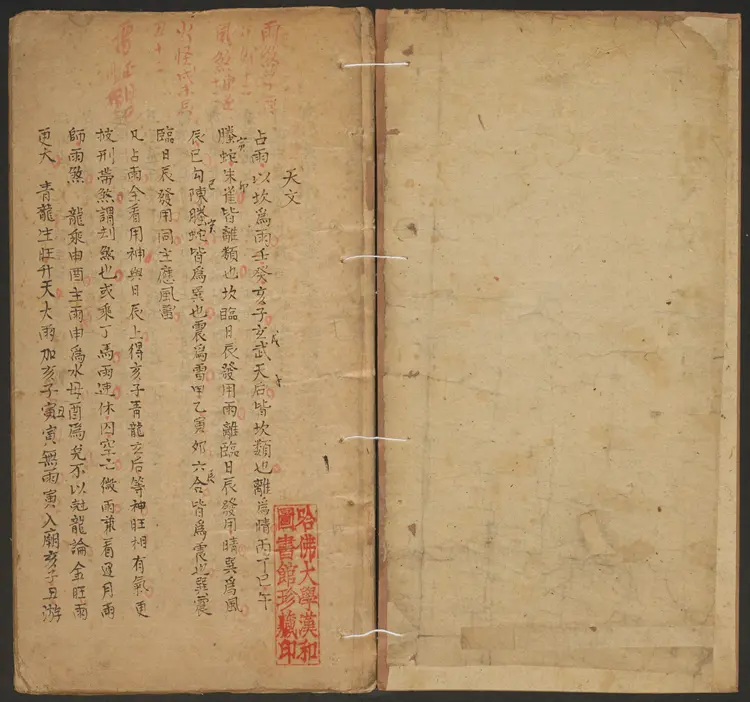 天文
占雨以坎為雨壬癸亥子玄武天后皆坎類也離為晴丙丁巳午
螣蛇朱雀皆離類也坎臨日辰發用雨離臨日辰發用晴巽為風
辰巳勾陳螣蛇皆為巽也震為雷甲乙寅卯六合皆為震也巽震
臨日辰發用同主應風雷
凡占雨全看用神與日辰上得亥子青龍玄后等神旺相有氣更
被刑帶煞謂刦煞也或乘丁馬雨速休囚空亡微雨兼看過月雨
師雨煞 龍乘申酉主雨申為水母酉為兌不以尅龍論金旺雨
更大 青龍生旺升天大雨加亥子寅寅無雨寅入廟亥子丑游
哈佛大學漢和
圖書館珍藏印